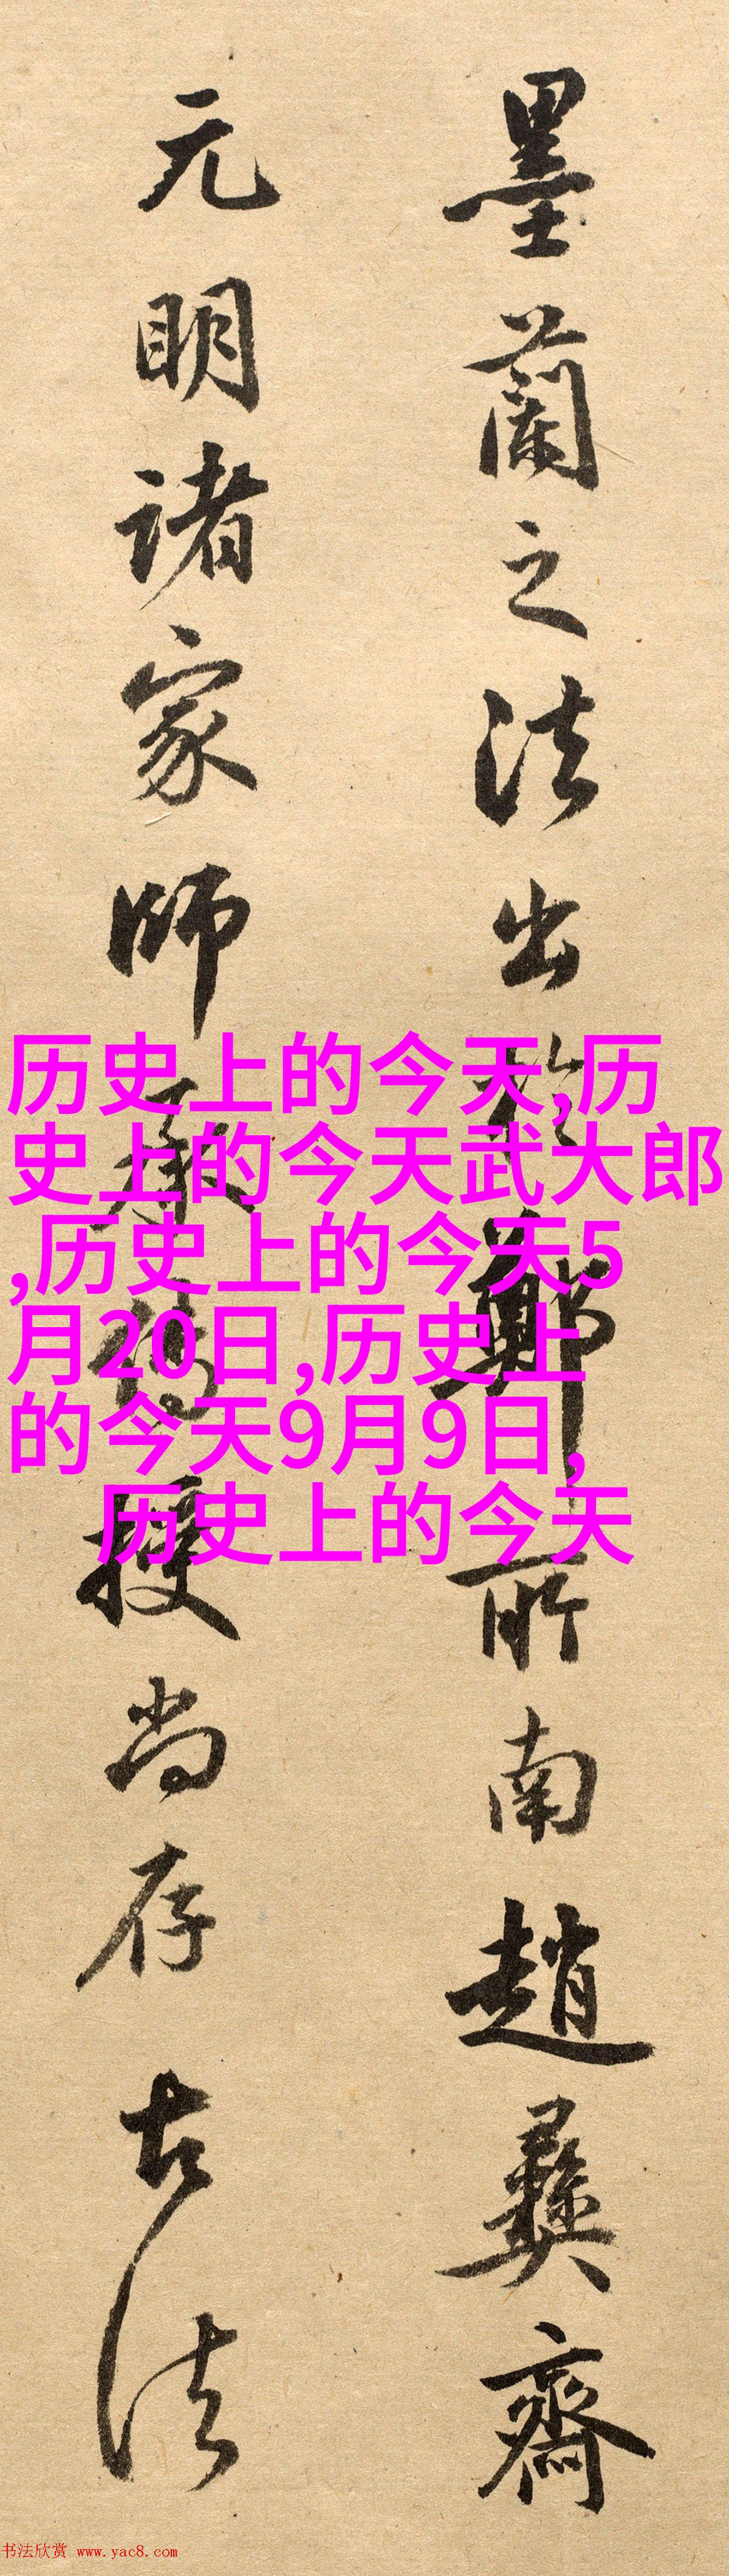 墨蘭之法出於鄭所南趙彝齋
元明诸家師承傳授尚存古法
历史上的今天,历
史上的今天武大郎
,历史上的今天5
月20日,历史上
的今天9月9日,
历史上的今天
书法欣赏 www.yac8.com